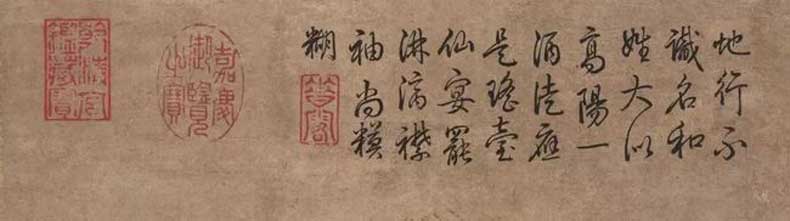 地行不
識名和
姓大似
高陽一
酒徒應
是瑤臺
仙宴罷
淋漓襟
袖尚糢
糊
嘉慶
御覽
之寶
乾清宮
鑑藏寶